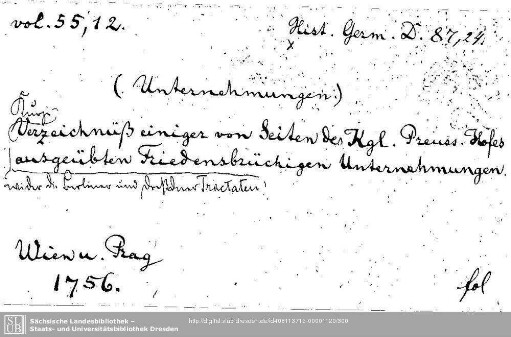 vol. 55,12.
Hist. Germ. D. 87,24.
x
(Unternehmungen.)
Kurz
Verzeichnüß einiger von Seiten des Kgl. Preuss. Hofes
ausgeübten Friedensbrüchigen Unternehmungen.
wider die Berliner und Dreßdner Tractaten
Wien u. Prag
1756.
fol
SLUB
Sächsische Landesbibliothek –
Staats- und Universitätsbibliothek Dresden